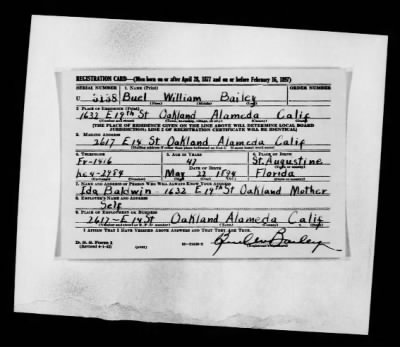 REGISTRATION CARD—(Men born on or after April 28, 1877 and on or before February 16, 1897)
SERIAL NUMBER 1. NAME (Print) ORDER NUMBER
U 3138 Buel William Bailey
(First) (Middle) (Last)
2. PLACE OF RESIDENCE (Print)
1632 E 19th St Oakland Alameda Calif
(Number and street) (Town, township, village, or city) (County) (State)
[THE PLACE OF RESIDENCE GIVEN ON THE LINE ABOVE WILL DETERMINE LOCAL BOARD
JURISDICTION; LINE 2 OF REGISTRATION CERTIFICATE WILL BE IDENTICAL]
3. MAILING ADDRESS
2617 E 14 St Oakland Alameda Calif
[Mailing address if other than place indicated on line 2. If same insert word same]
4. TELEPHONE 5. AGE IN YEARS 6. PLACE OF BIRTH
Fr-1416 47 St. Augustine
DATE OF BIRTH (Town or county)
May 22 1894 Florida
(Exchange) (Number) (Mo.) (Day) (Yr.) (State or country)
7. NAME AND ADDRESS OF PERSON WHO WILL ALWAYS KNOW YOUR ADDRESS
Ida Baldwin 1632 E 19th St Oakland Mother
8. EMPLOYER'S NAME AND ADDRESS
Self
9. PLACE OF EMPLOYMENT OR BUSINESS
2617-E 14 St Oakland Alameda Calif
(Number and street or R. F. D. number) (Town) (County) (State)
I AFFIRM THAT I HAVE VERIFIED ABOVE ANSWERS AND THAT THEY ARE TRUE.
D. S. S. Form 1
(Revised 4-1-42) (over) (Registrant's signature)